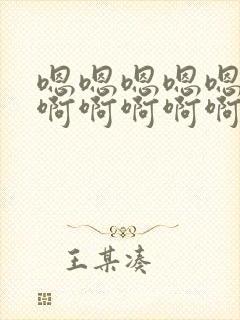 嗯嗯嗯嗯嗯
啊啊啊啊啊
王某凑